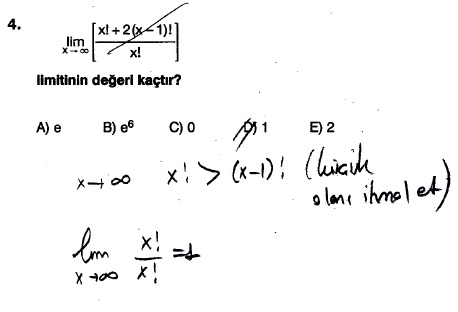 4.
lim x→∞ [x! + 2(x – 1)! / x!]
limitinin değeri kaçtır?
A) e B) e⁶ C) 0 D) 1 E) 2
x→∞ x! > (x-1)! (küçük
olanı ihmal et)
lim x→∞ x!/x! = 1